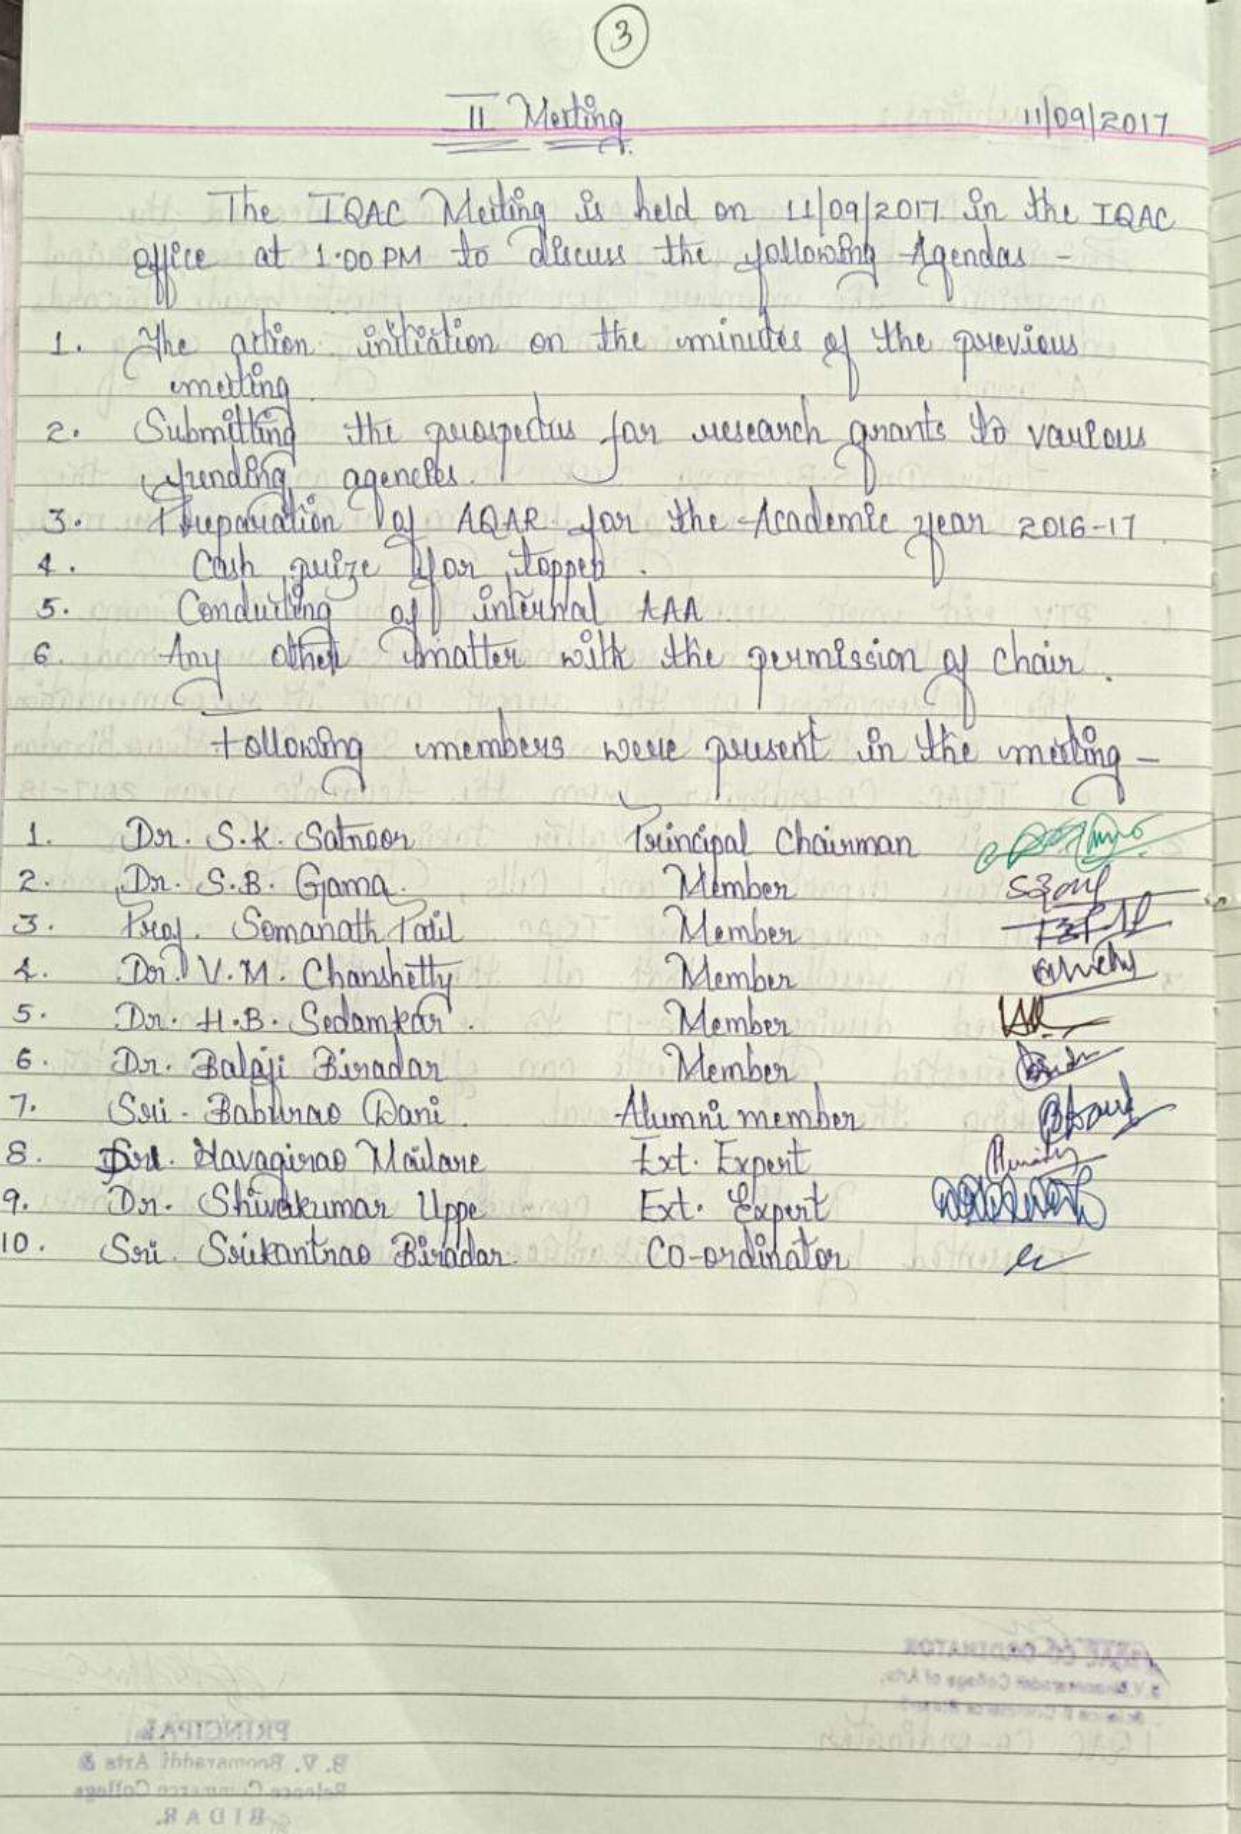 3
II Meeting
11/09/2017
The IQAC Meeting is held on 11/09/2017 in the IQAC
office at 1.00 PM to discuss the following Agendas -
1. The action initiation on the minutes of the previous
meeting.
2. Submitting the prospectus for research grants to various
funding agencies.
3. Preparation of AQAR for the Academic year 2016-17
4. Cash prize for topper.
5. Conducting of internal AAA
6. Any other matter with the permission of chair.
Following members were present in the meeting -
1. Dr. S.K. Satnoor Principal Chairman
2. Dr. S.B. Gama. Member
3. Prof. Somanath Patil Member
4. Dr. V.M. Chanshetty Member
5. Dr. H.B. Sedamkar. Member
6. Dr. Balaji Biradar Member
7. Sri. Baburao Dani. Alumni member
8. Havagirao Mailare Ext. Expert
9. Dr. Shivakumar Uppe Ext. Expert
10. Sri. Srikantrao Biradar. Co-ordinator
PRINCIPAL
B. V. Boomaraddi Arts &
Science Commerce College
BIDAR.